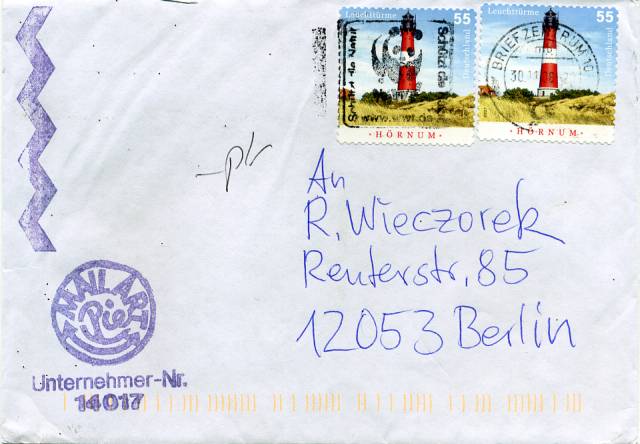 Leuchttürme 55
Deutschland
HÖRNUM
Schützt die Natur
Schützt die
www.wwf.de
Leuchttürme 55
Deutschland
HÖRNUM
BRIEFZENTRUM 10
30.11
An
R. Wieczorek
Reuterstr. 85
12053 Berlin
MAIL ART
Pie
Unternehmer-Nr.
14017